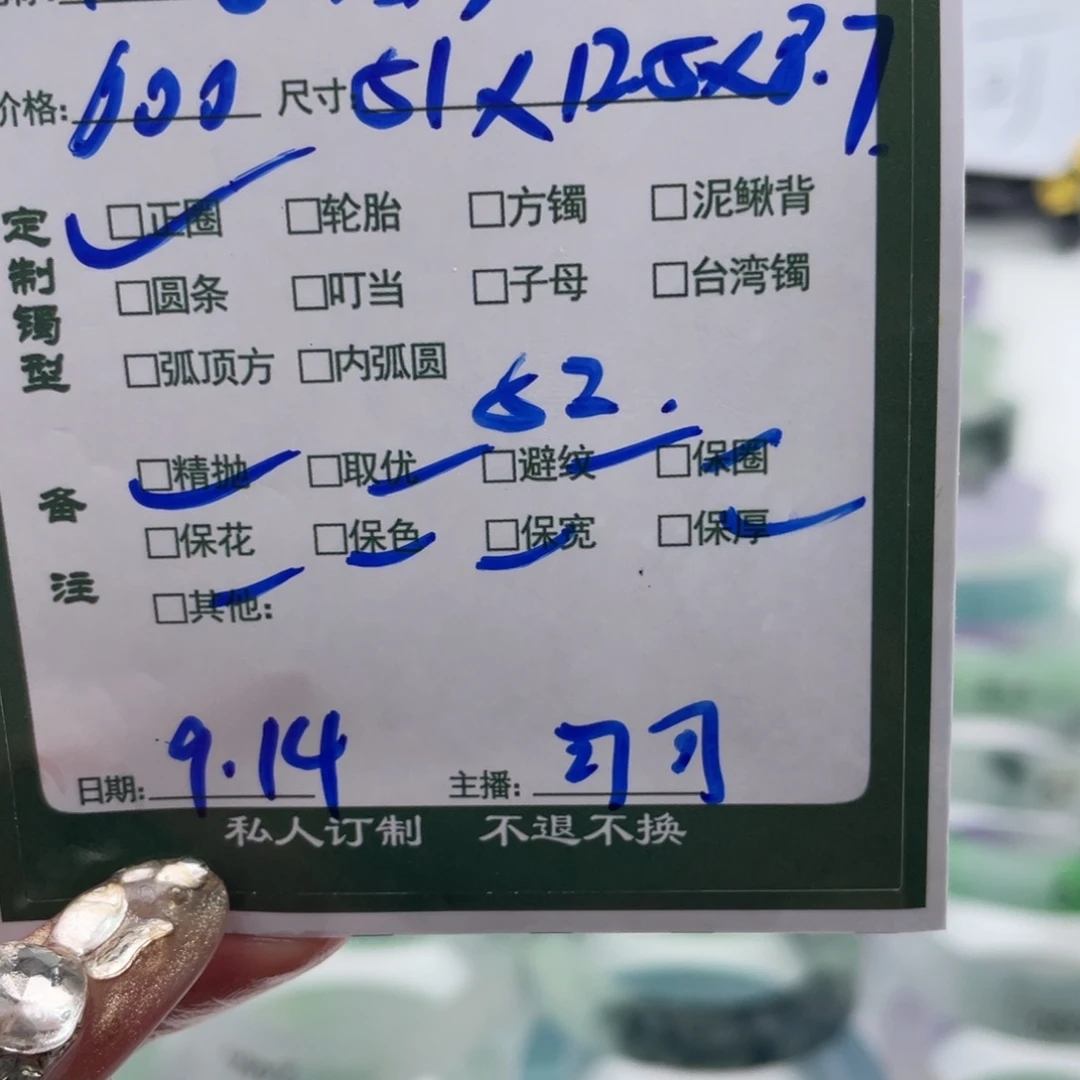 价格: 600 尺寸: 51×125×8.7
定制镯型
□正圈 □轮胎 □方镯 □泥鳅背
□圆条 □叮当 □子母 □台湾镯
□弧顶方 □内弧圆
52.
备注
□精抛 □取优 □避纹 □保圈
□保花 □保色 □保宽 □保厚
□其他:
日期: 9.14 主播: 习习
私人订制 不退不换